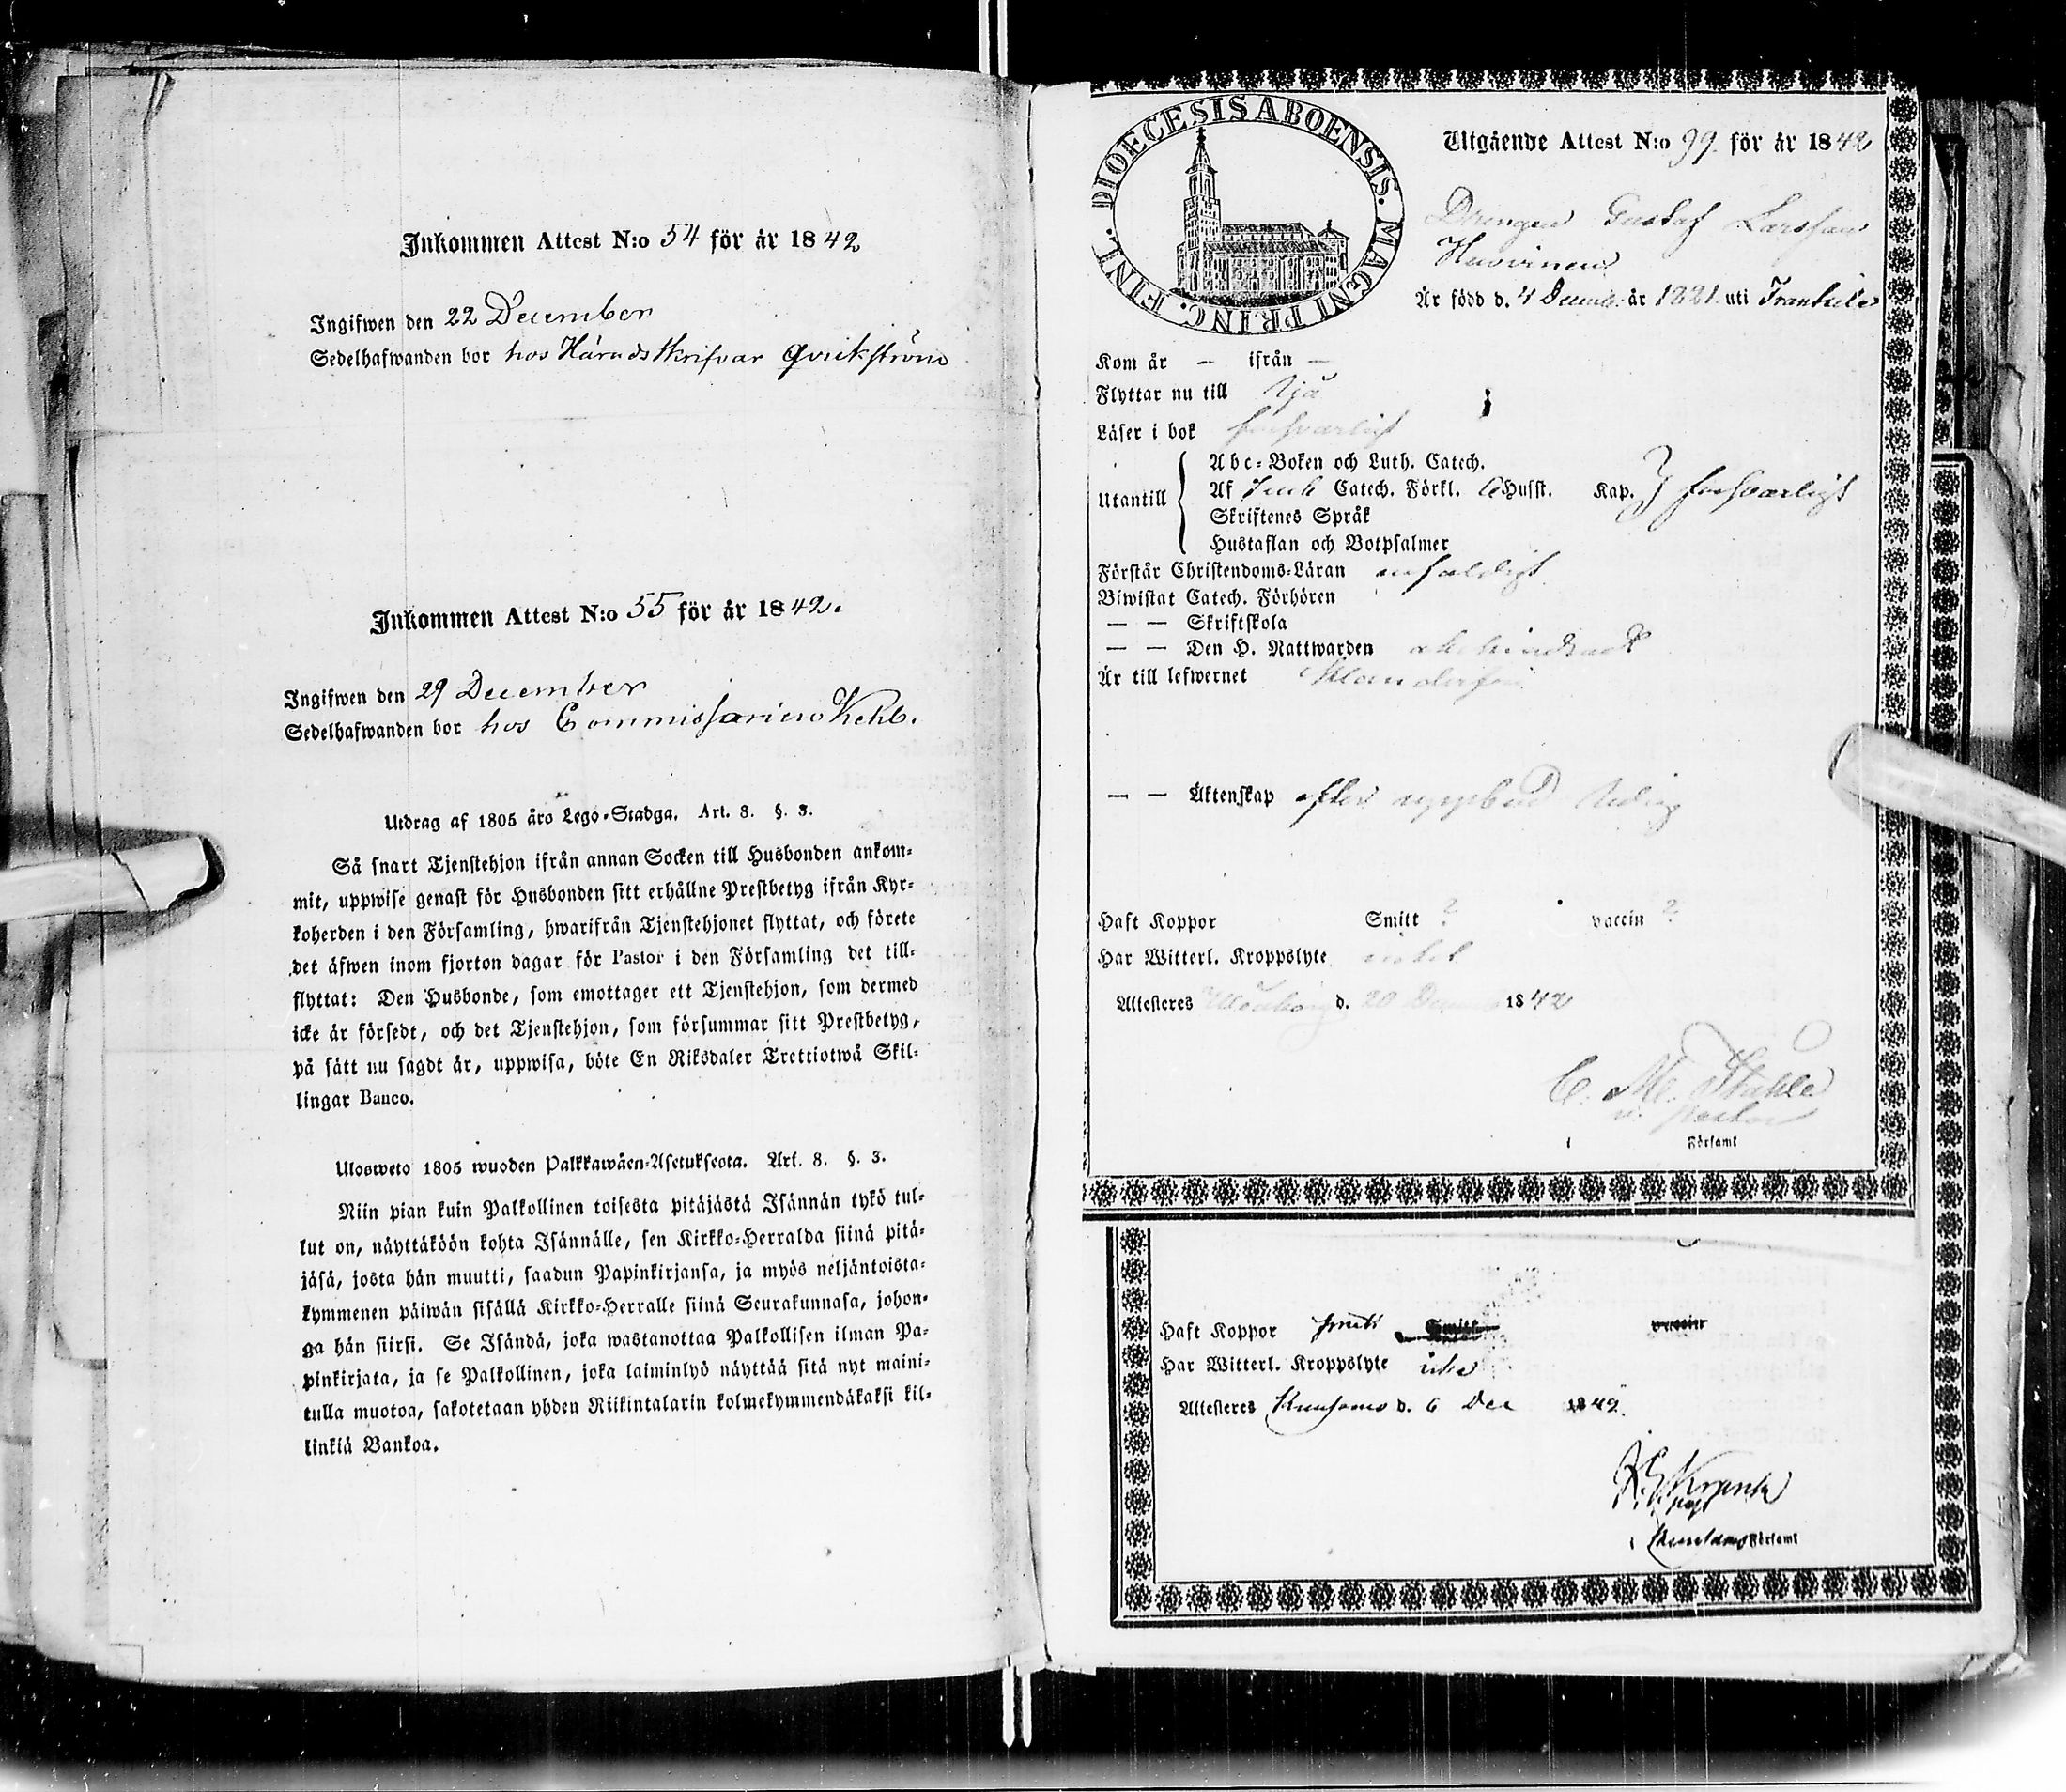 Inkommen Attest N:o 54 för år 1842
Ingifwen den 22 December
Sedelhafwanden bor hos Häradsskrifvar Qvickström
Inkommen Attest N:o 55 för år 1842.
Ingifwen den 29 December
Sedelhafwanden bor hos Commissarien
Utdrag af 1805 åro Lego-Stadga. Art. 8. §. 3.
Så snart Tjenstehjon ifrån annan Socken till Husbonden ankom-
mit, uppwise genast för Husbonden sitt erhållne Prestbetyg ifrån Kyr-
koherden i den Församling, hwarifrån Tjenstehjonet flyttat, och förete
det äfwen inom fjorton dagar för Pastor i den Församling det till-
flyttat: Den Husbonde, som emottager ett Tjenstehjon, som dermed
icke är försedt, och det Tjenstehjon, som försummar sitt Prestbetyg,
på sätt nu sagdt är, uppwisa, böte En Riksdaler Trettiotwå Skil-
lingar Banco.
Ulosweto 1805 wuoden Palkkawäen-Asetuksesta. Art. 8. §. 3.
Niin pian kuin Palkollinen toisesta pitäjästä Isännän tykö tul-
lut on, näyttäköön kohta Isännälle, sen Kirkko-Herralda siinä pitä-
jäsä, josta hän muutti, saadun Papinkirjansa, ja myös neljäntoista-
kymmenen päiwän sisällä Kirkko-Herralle siinä Seurakunnasa, johon-
ga hän siirsi. Se Isändä, joka wastanottaa Palkollisen ilman Pa-
pinkirjata, ja se Palkollinen, joka laiminlyö näyttää sitä nyt maini-
tulla muotoa, sakotetaan yhden Riikintalarin kolmekymmendäkaksi kil-
linkiä Bankoa.
DIOECESIS ABOENSIS. MAGNI PRINC. FINL.
Utgående Attest N:o 99. för år 1842
Drengen Gustaf Larsson
Huovinen
Är född d. 4 Decemb. år 1821. uti Frantsila
Kom år — ifrån —
Flyttar nu till Ijo
Läser i bok försvarligt
Utantill
Abc-Boken och Luth. Catech.
Af Catech. Förkl. Husst. Kap. försvarligt
Skriftenes Språk
Hustaflan och Botpsalmer
Förstår Christendoms-Läran enfaldigt
Biwistat Catech. Förhören
— — Skriftskola
— — Den H. Nattwarden obehindrad
Är till lefwernet klanderfri
— — Äktenskap efter uppbud ledig
Haft Koppor Smitt ? vaccin ?
Har Witterl. Kroppslyte intet
Attesteres Uleåborg d. 20 Decemb 1842
C. M. Ståhle
v. Pastor
i Församl
Haft Koppor Smitt vaccin
Har Witterl. Kroppslyte icke
Attesteres Kuusamo d. 6 Dec 1842.
i Kuusamo Församl